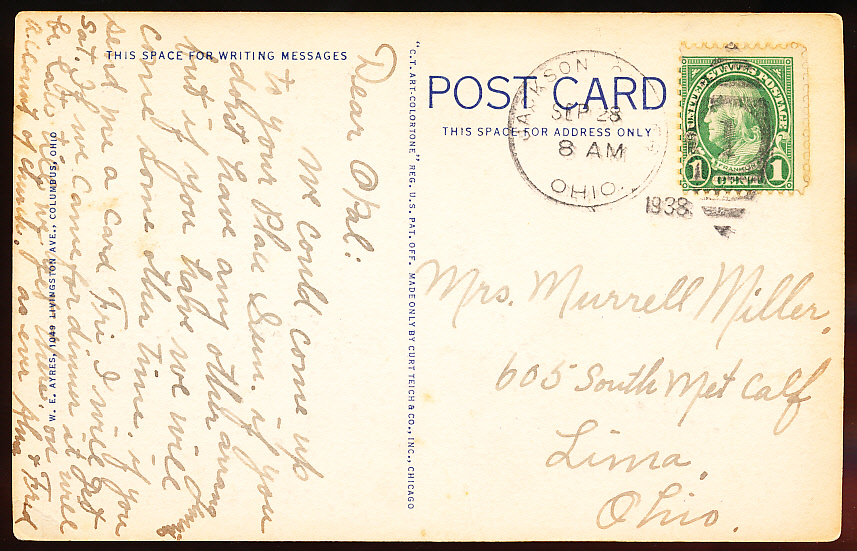 THIS SPACE FOR WRITING MESSAGES
Dear Opal:
We could come up
to your Place Sun. if you
don't have any other arang
ments
but if you have we will
come some other time. if you
send me a card Fri I will get
Sat. If we came for dinner it will
be late
as ever Alma & Fred
W. E. AYRES, 1049 LIVINGSTON AVE., COLUMBUS, OHIO
"C.T. ART-COLORTONE" REG. U.S. PAT. OFF. MADE ONLY BY CURT TEICH & CO., INC., CHICAGO
POST CARD
THIS SPACE FOR ADDRESS ONLY
SEP 28
8 AM
OHIO
1938
UNITED STATES POSTAGE
FRANKLIN
1 CENT 1
Mrs. Murrell Miller.
605 South Met Calf
Lima,
Ohio.